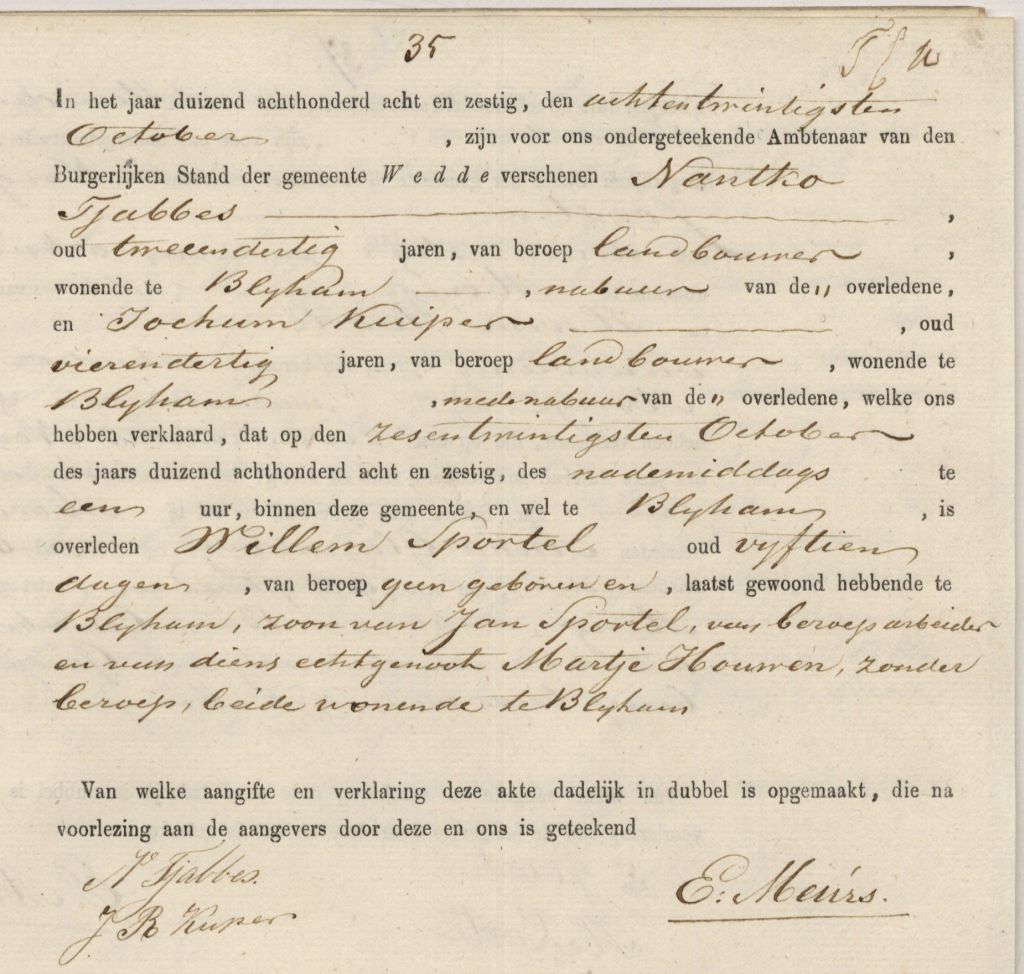 35
In het jaar duizend achthonderd acht en zestig, den achtentwintigsten
October , zijn voor ons ondergeteekende Ambtenaar van den
Burgerlijken Stand der gemeente Wedde verschenen Nantko
Tjabbes ,
oud tweeendertig jaren, van beroep landbouwer ,
wonende te Blyham , nabuur van de „ overledene,
en Jochum Kuiper , oud
vierendertig jaren, van beroep landbouwer , wonende te
Blyham , medenabuur van de „ overledene, welke ons
hebben verklaard, dat op den zesentwintigsten October
des jaars duizend achthonderd acht en zestig, des nademiddags te
een uur, binnen deze gemeente, en wel te Blyham , is
overleden Willem Sportel oud vyftien
dagen , van beroep geen geboren en , laatst gewoond hebbende te
Blyham, zoon van Jan Sportel, van beroep arbeider
en van diens echtgenoot Martje Houwen, zonder
beroep, beide wonende te Blyham
Van welke aangifte en verklaring deze akte dadelijk in dubbel is opgemaakt, die na
voorlezing aan de aangevers door deze en ons is geteekend
N Tjabbes.
J R Kuper
E: Meurs.